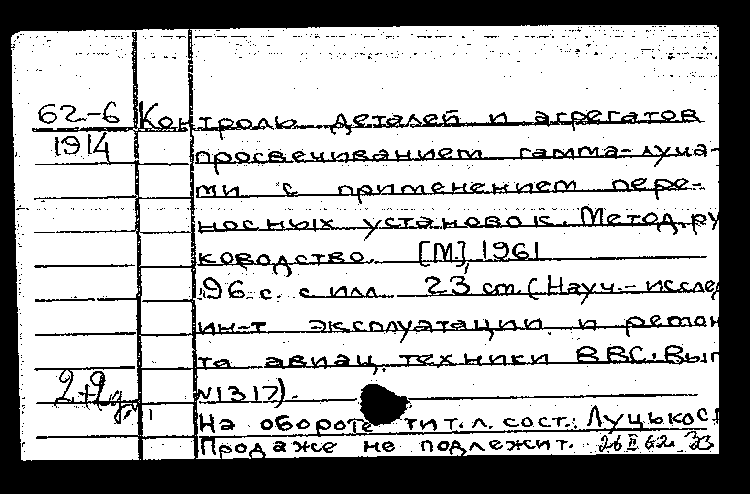 62-6 Контроль деталей и агрегатов
1914 просвечиванием гамма-луча-
ми с применением пере-
носных установок. Метод. ру
ководство. [М], 1961
96 с. с илл. 23 см. (Науч.-исслед
ин-т эксплуатации и ремон
та авиац. техники ВВС. Вып
N1317).
На обороте тит. л. сост.: Луцько
Продаже не подлежит. 26 II 62 ЗЗ